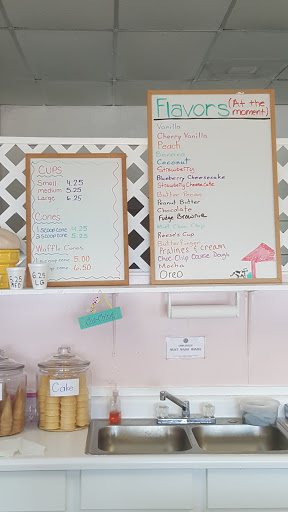 CUPS
Small 4.25
medium 5.25
Large 6.25
Cones
1 scoop cone 4.25
2 scoop cone 5.25
Waffle Cones
1 scoop cone 5.00
cone 6.50
Flavors (At the moment)
Vanilla
Cherry Vanilla
Peach
Banana
Coconut
Strawberry
Blueberry Cheesecake
Strawberry Cheesecake
Butter Pecan
Peanut Butter
Chocolate
Fudge Brownie
Mint Choc Chip
Reese's Cup
Butterfinger
Pralines & Cream
Choc Chip Cookie Dough
Mocha
Oreo
5.25
MED
6.25
LG
Cake